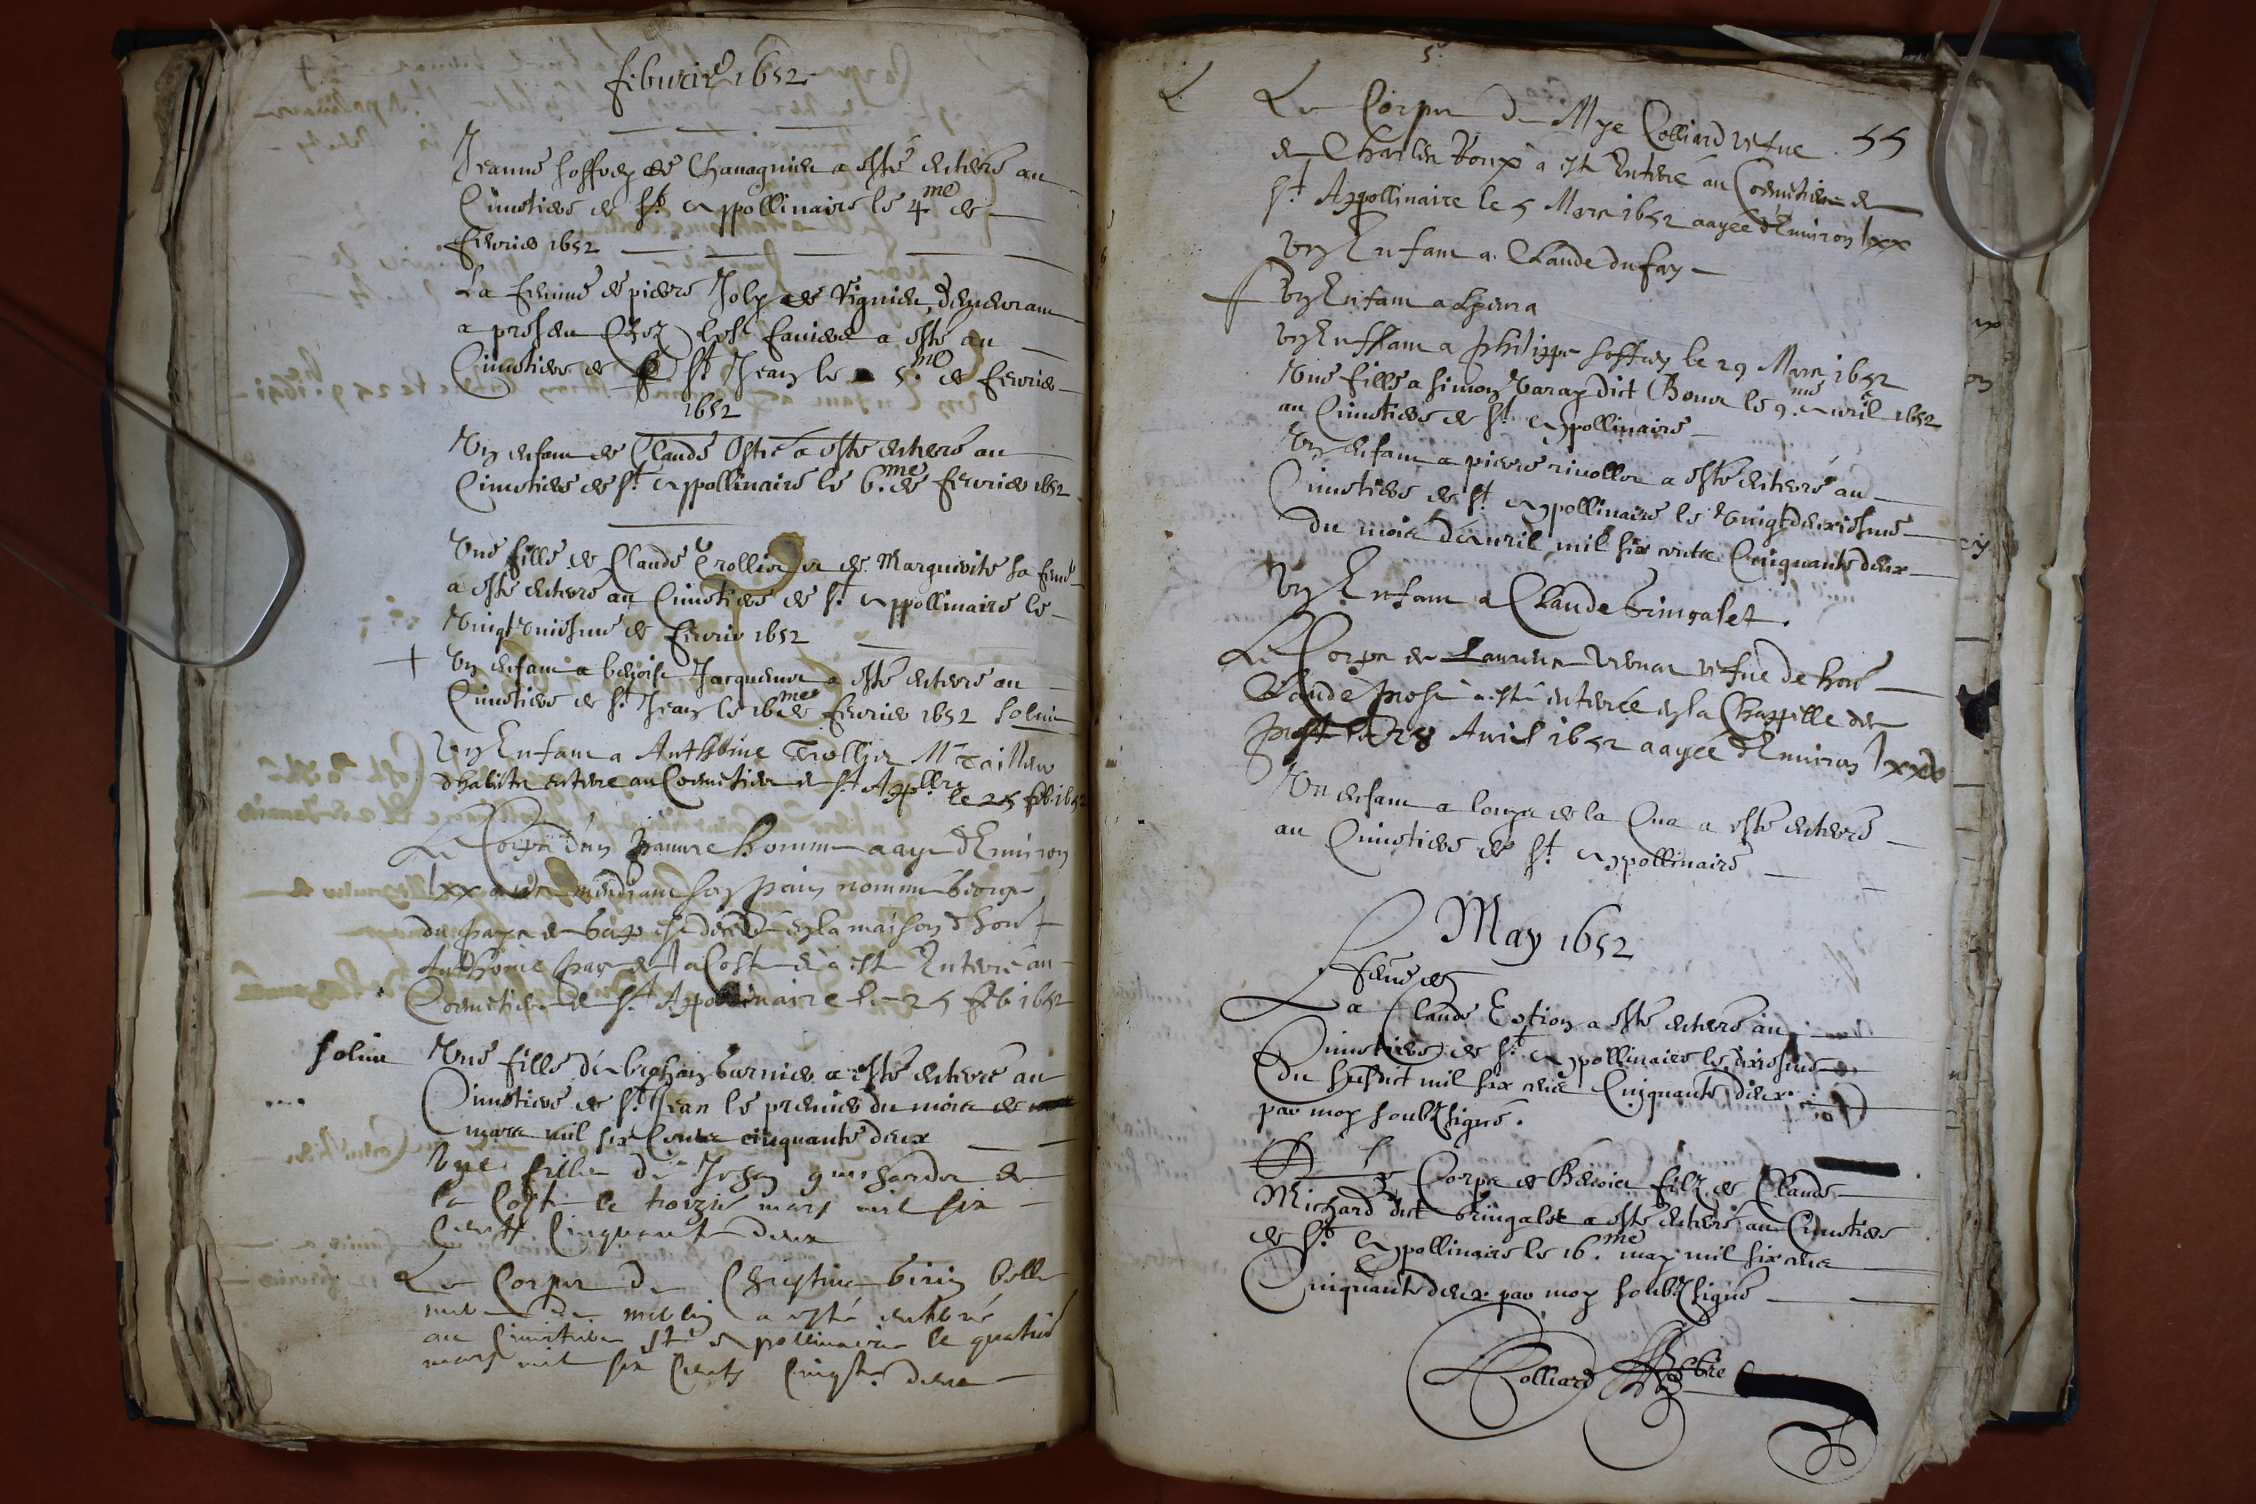 feburier 1652
Jeanne soffrey de Chanagnieu a esté enterré au
Cimetiere de St. Appollinaire le 4me de
feurier 1652
La femme de pierre Joly de Vignieu, demeurant
a present Chez a esté au
Cimetiere de St Jean le 5.me de feurier
1652
Un enfant de Claude Ostie a esté enterré au
Cimetiere de St. Appollinaire le 6.me de feurier 1652
Une fille de Claude Trollier et de Marguerite sa feme
a esté enterré au Cimetiere de St. Appollinaire le
Vingt uniesme de feurier 1652
Un enfant a benoist Jacquemet a esté enterré au
Cimetiere de St. Jean le 16me de feurier 1652 solui
Un Enfant a Anthoine Trollier Mr Tailleur
d'habits enterre au Cemetiere de St Appllre
le 25 feb 1652
Le Corps d'un pauure homme aagé d'Enuiron
lxx ans mendiant son pain nommé George
du pays de est décédé en la maison d'hon.
Anthoine de la Coste et a esté Enterré au
Cemetiere de St Appollinaire le 25 feb 1652
soluit
Une fille de burnier a esté enterré au
Cimetiere de St. Jean le premier du mois de
mars mil six Cents cinquante deux
Une fille de Jehan guichardet de
la Coste le troizie mars mil six
Cents Cinquante deux
Le Corps de Christine birin belle
mere de a esté enterré
au Cimitiere St Appollinaire le quatrie
mars mil six Cents Cinqte. deux
5.
Le Corps de Mye Colliard vefue 55
de Charles Roux a esté Enterré au Cemetiere de
St. Appollinaire le 5 Mars 1652 aagée d'Enuiron lxx
Un Enfant a Claude dufay
Un Enfant a
Un Enffant a philippe soffrey le 29 Mars 1652
Une fille a simon Varay dict Bour le 9.me Auril 1652
au Cimetiere de St. Appollinaire
Un enfant a pierre riuollet a esté enterré au
Cimetiere de St. Appollinaire le Vingtdeuxiesme
du mois d'auril mil six cents Cinquante deux
Un Enfant a Claude Gringalet.
Le Corps de Laurence vefue de hon.
Claude prost a esté enterrée en la Chappelle des
prost le 28 Auril 1652 aagée d'Enuiron
Un enfant a louys de la Cua a esté enterré
au Cimetiere de St. Appollinaire
May 1652
feme de
La Claude a esté enterré au
Cimetiere de St. Appollinaire le dixiesme
du susdict mil six cens Cinquante deux
par moy soubzsigné.
Le Corps de Benoict filz de Claude
Michard dict Gringalet a esté enterré au Cimetiere
de St. Appollinaire le 16.me may mil six cens
Cinquante deux par moy soubzsigné
Colliard